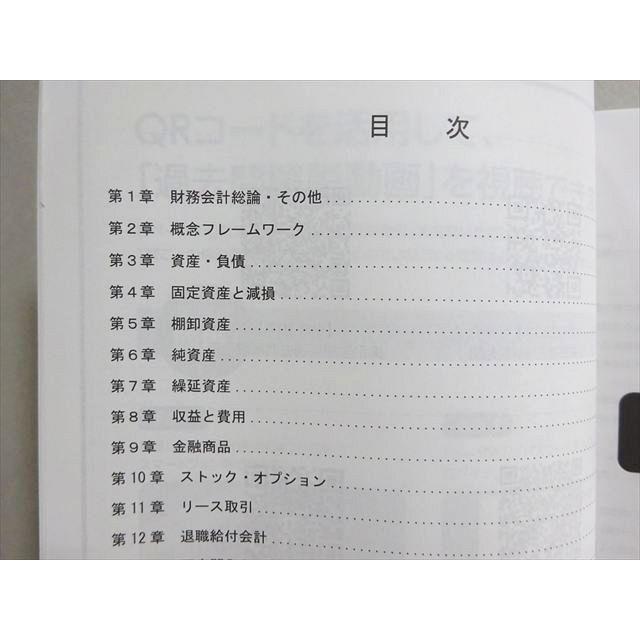 目 次
第1章 財務会計総論・その他
第2章 概念フレームワーク
第3章 資産・負債
第4章 固定資産と減損
第5章 棚卸資産
第6章 純資産
第7章 繰延資産
第8章 収益と費用
第9章 金融商品
第10章 ストック・オプション
第11章 リース取引
第12章 退職給付会計